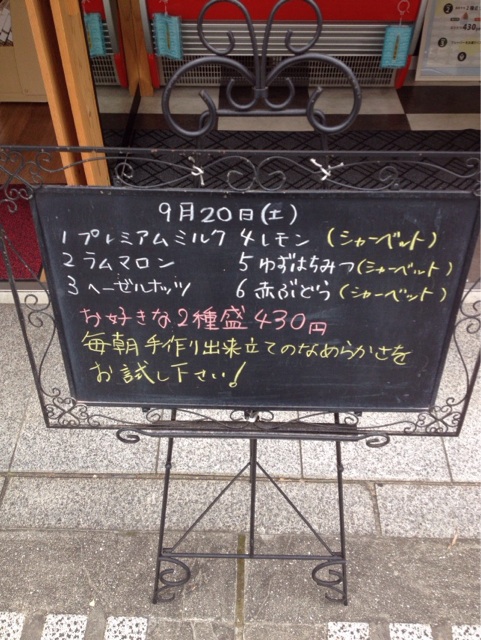 9月20日(土)
1 プレミアムミルク 4 レモン (シャーベット)
2 ラムマロン 5 ゆずはちみつ (シャーベット)
3 ヘーゼルナッツ 6 赤ぶどう (シャーベット)
お好きな2種盛430円
毎朝手作り出来立てのなめらかさを
お試し下さい!